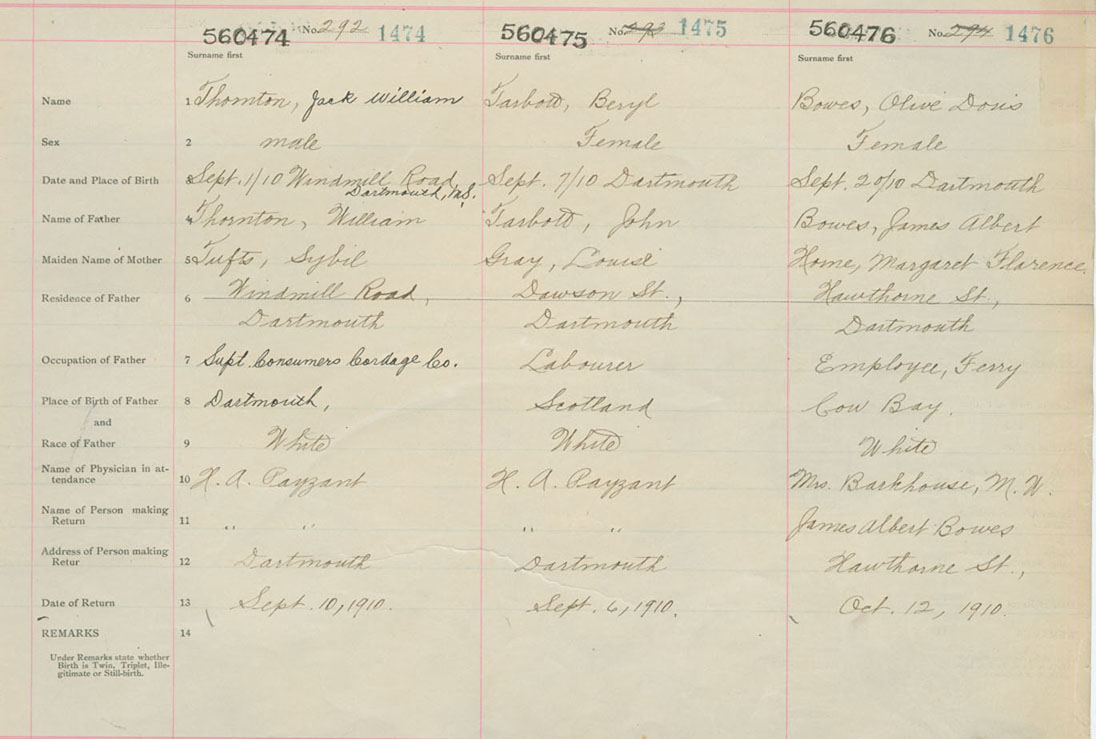 560474 No. 292 1474 560475 No. 293 1475 560476 No. 294 1476
Surname first Surname first Surname first
Name 1 Thornton, Jack William Tarbott, Beryl Bowes, Olive Doris
Sex 2 male Female Female
Date and Place of Birth 3 Sept. 1/10 Windmill Road Sept. 7/10 Dartmouth Sept. 20/10 Dartmouth
Dartmouth, N.S.
Name of Father 4 Thornton, William Tarbott, John Bowes, James Albert
Maiden Name of Mother 5 Tufts, Sybil Gray, Louise Horne, Margaret Florence
Residence of Father 6 Windmill Road, Dawson St., Hawthorne St.,
Dartmouth Dartmouth Dartmouth
Occupation of Father 7 Supt. Consumers Cordage Co. Labourer Employee, Ferry
Place of Birth of Father 8 Dartmouth, Scotland Cow Bay.
and
Race of Father 9 White White White
Name of Physician in at-
tendance 10 H. A. Payzant H. A. Payzant Mrs. Barkhouse, M. W.
Name of Person making
Return 11 " " " " James Albert Bowes
Address of Person making
Retur 12 Dartmouth Dartmouth Hawthorne St.,
Date of Return 13 Sept. 10, 1910. Sept. 6, 1910. Oct. 12, 1910.
REMARKS 14
Under Remarks state whether
Birth is Twin, Triplet, Ille-
gitimate or Still-birth.